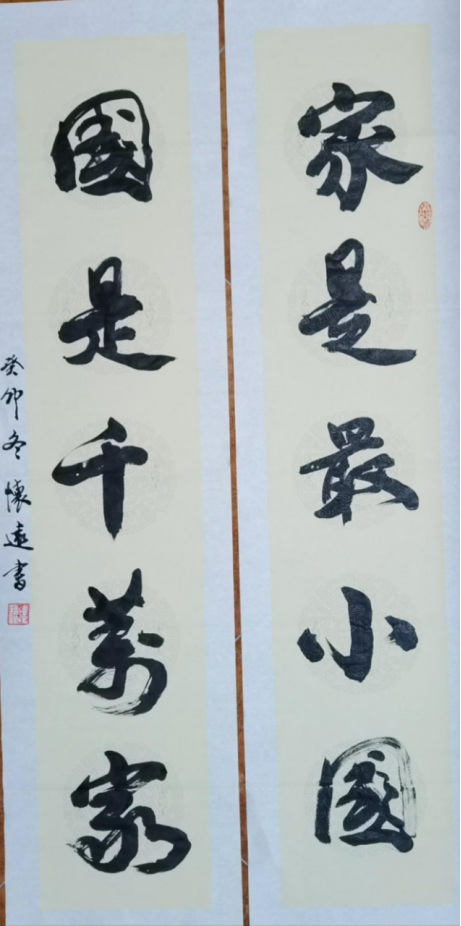 家是最小國
國是千萬家
癸卯冬懷遠書